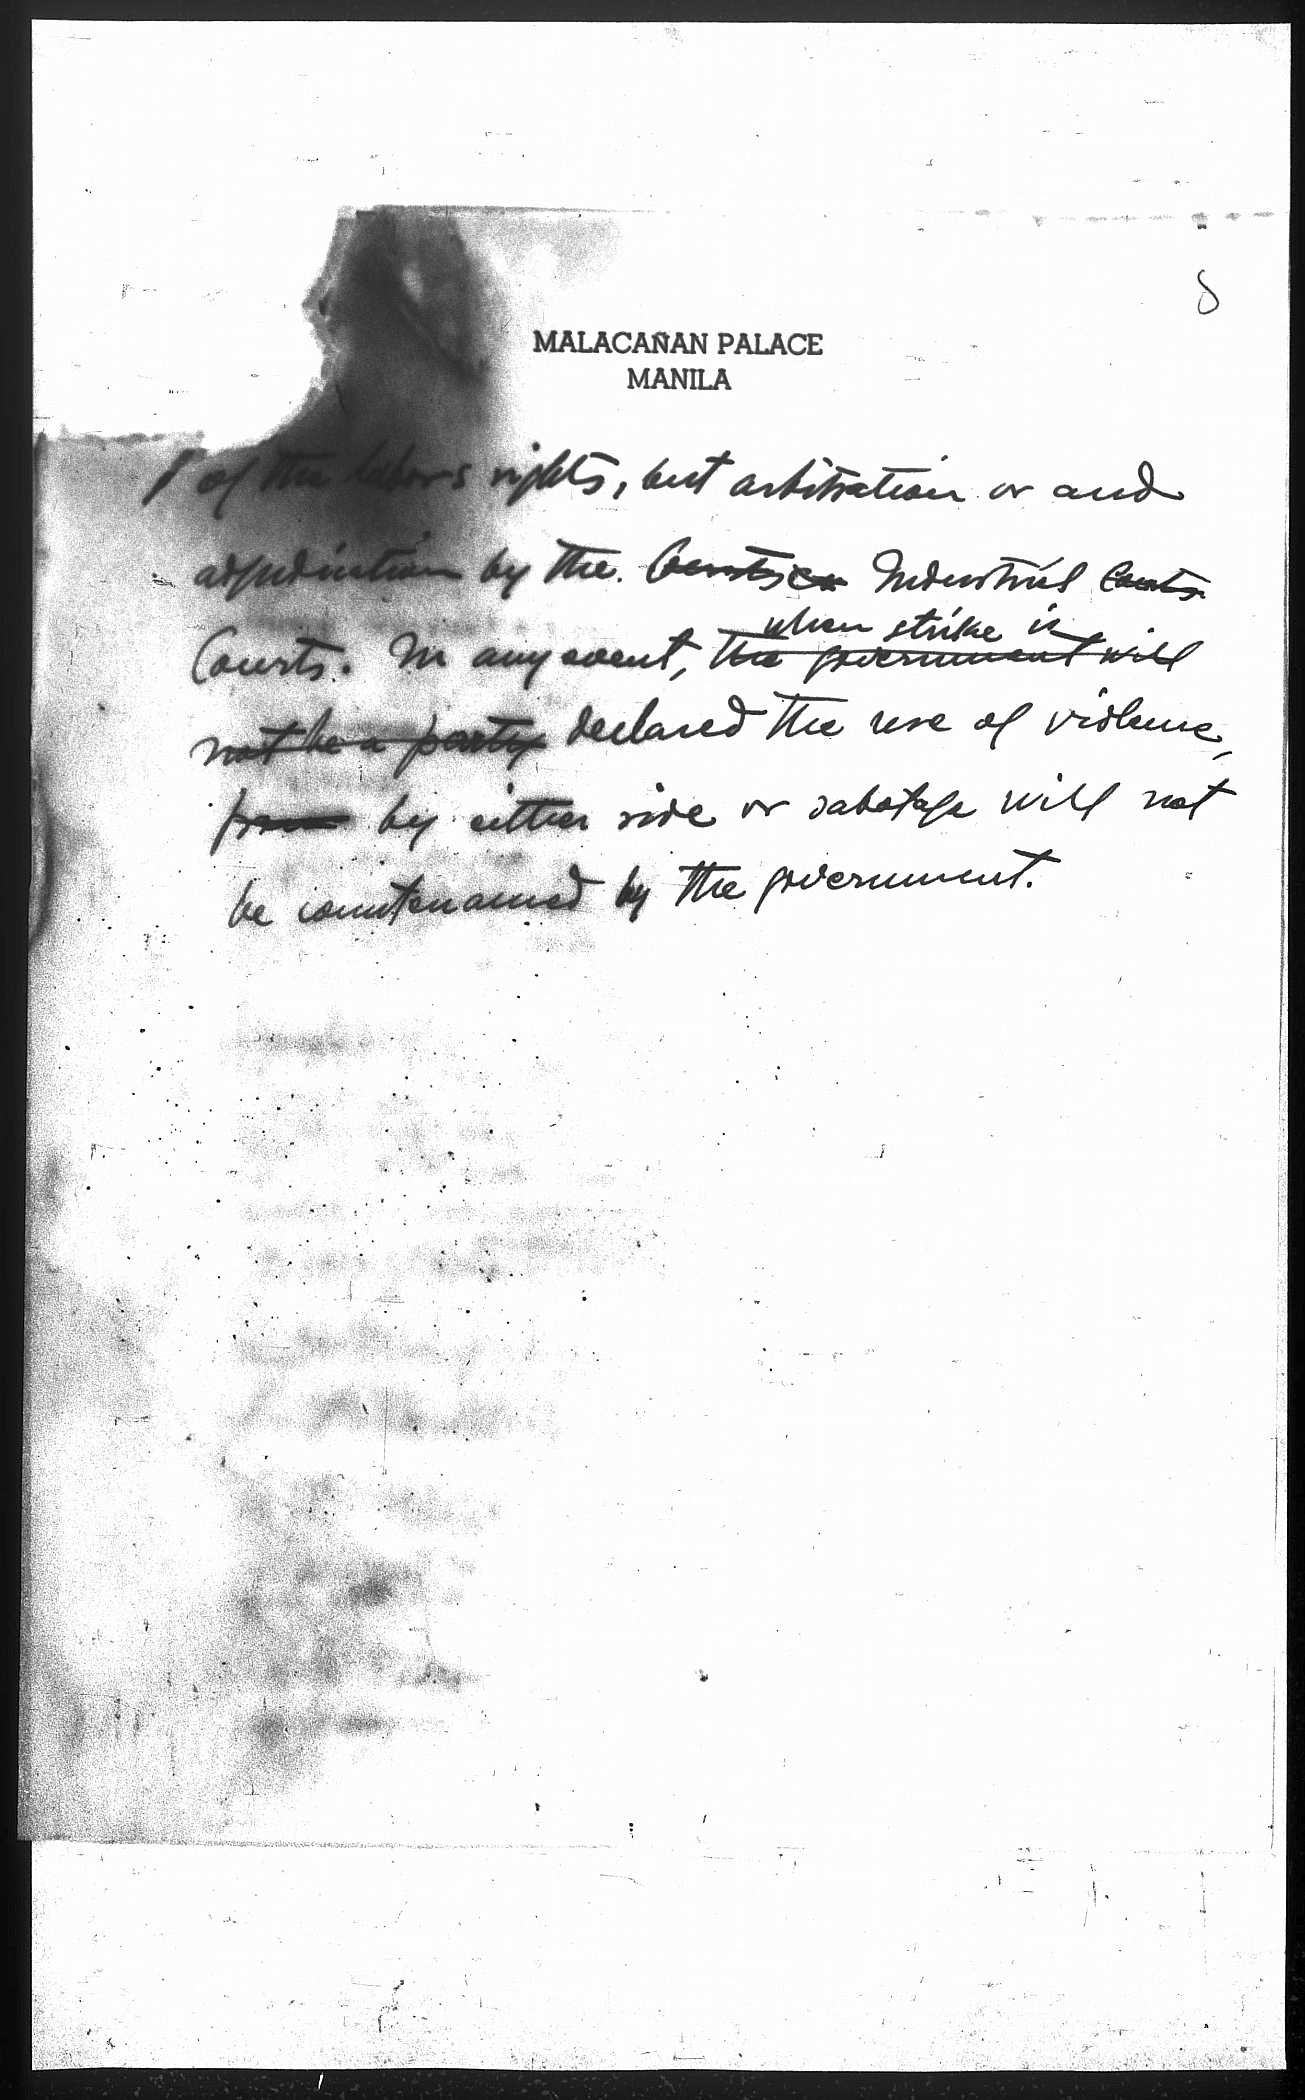 8
MALACAÑAN PALACE
MANILA
of the labors rights, but arbitration or and
adjudication by the. Industrial Courts
when strike is
Courts. In any event, the government will
not be a party declared the use of violence,
from by either side or sabotage will not
be countenanced by the government.